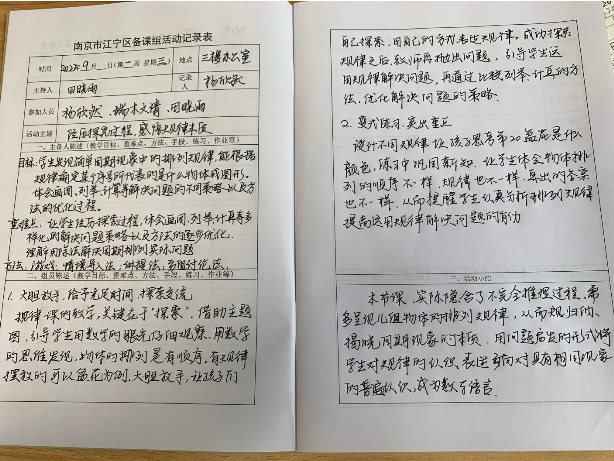 南京市江宁区备课组活动记录表
时间 2022年9月 日(第二周 星期三) 地点 三楼办公室
主持人 田晓雨 记录人 杨欣然
参加人员 杨欣然、端木文倩、田晓雨
活动主题 经历探究过程,感悟规律本质
一、主备人陈述(教学目标、重难点、方法、手段、练习、作业等)
目标:学生发现简单周期现象中的排列规律,能根据
规律确定某个序号所代表的是什么物体或图形。
体会画图、列举、计算等解决问题的不同策略以及方
法的优化过程。
重难点:让学生经历探索过程,体会画图、列举、计算等多
样化的解决问题策略以及方法的逐步优化。
理解用除法解决周期排列实际问题
方法:游戏、情境导入法;讲授法;小组讨论法
二、组员陈述(教学目标、重难点、方法、手段、练习、作业等)
1. 大胆放手,给予充足时间,探索交流
规律课的教学,关键在于“探索”,借助主题
图,引导学生用数学的眼光仔细观察,用数学
的思维发现,物体的排列是有顺序,有规律
摆放的可以盆花为例,大胆放手,让孩子们
自己探索,用自己的方式表达规律,成功探索
规律之后,教师再抛出问题,引导学生运
用规律解决问题,再通过比较列举、计算的方
法,优化解决问题的策略。
2. 变式练习,突出重点
设计不同规律,让孩子思考第20盆花是什么
颜色,练习中巩固新知,让学生体会物体排
列的顺序不一样,规律也不一样,得出的答案
也不一样,从而提醒学生认真分析排列规律
提高运用规律解决问题的能力
三、活动小结
本节课,实际隐含了不完全推理过程,需
多呈现几组物体的排列规律,从而规归纳、
揭晓周期现象的本质,用问题启发的形式将
学生对规律的认识、表述方向对具有相同现象
的普遍认识,成为数学语言。